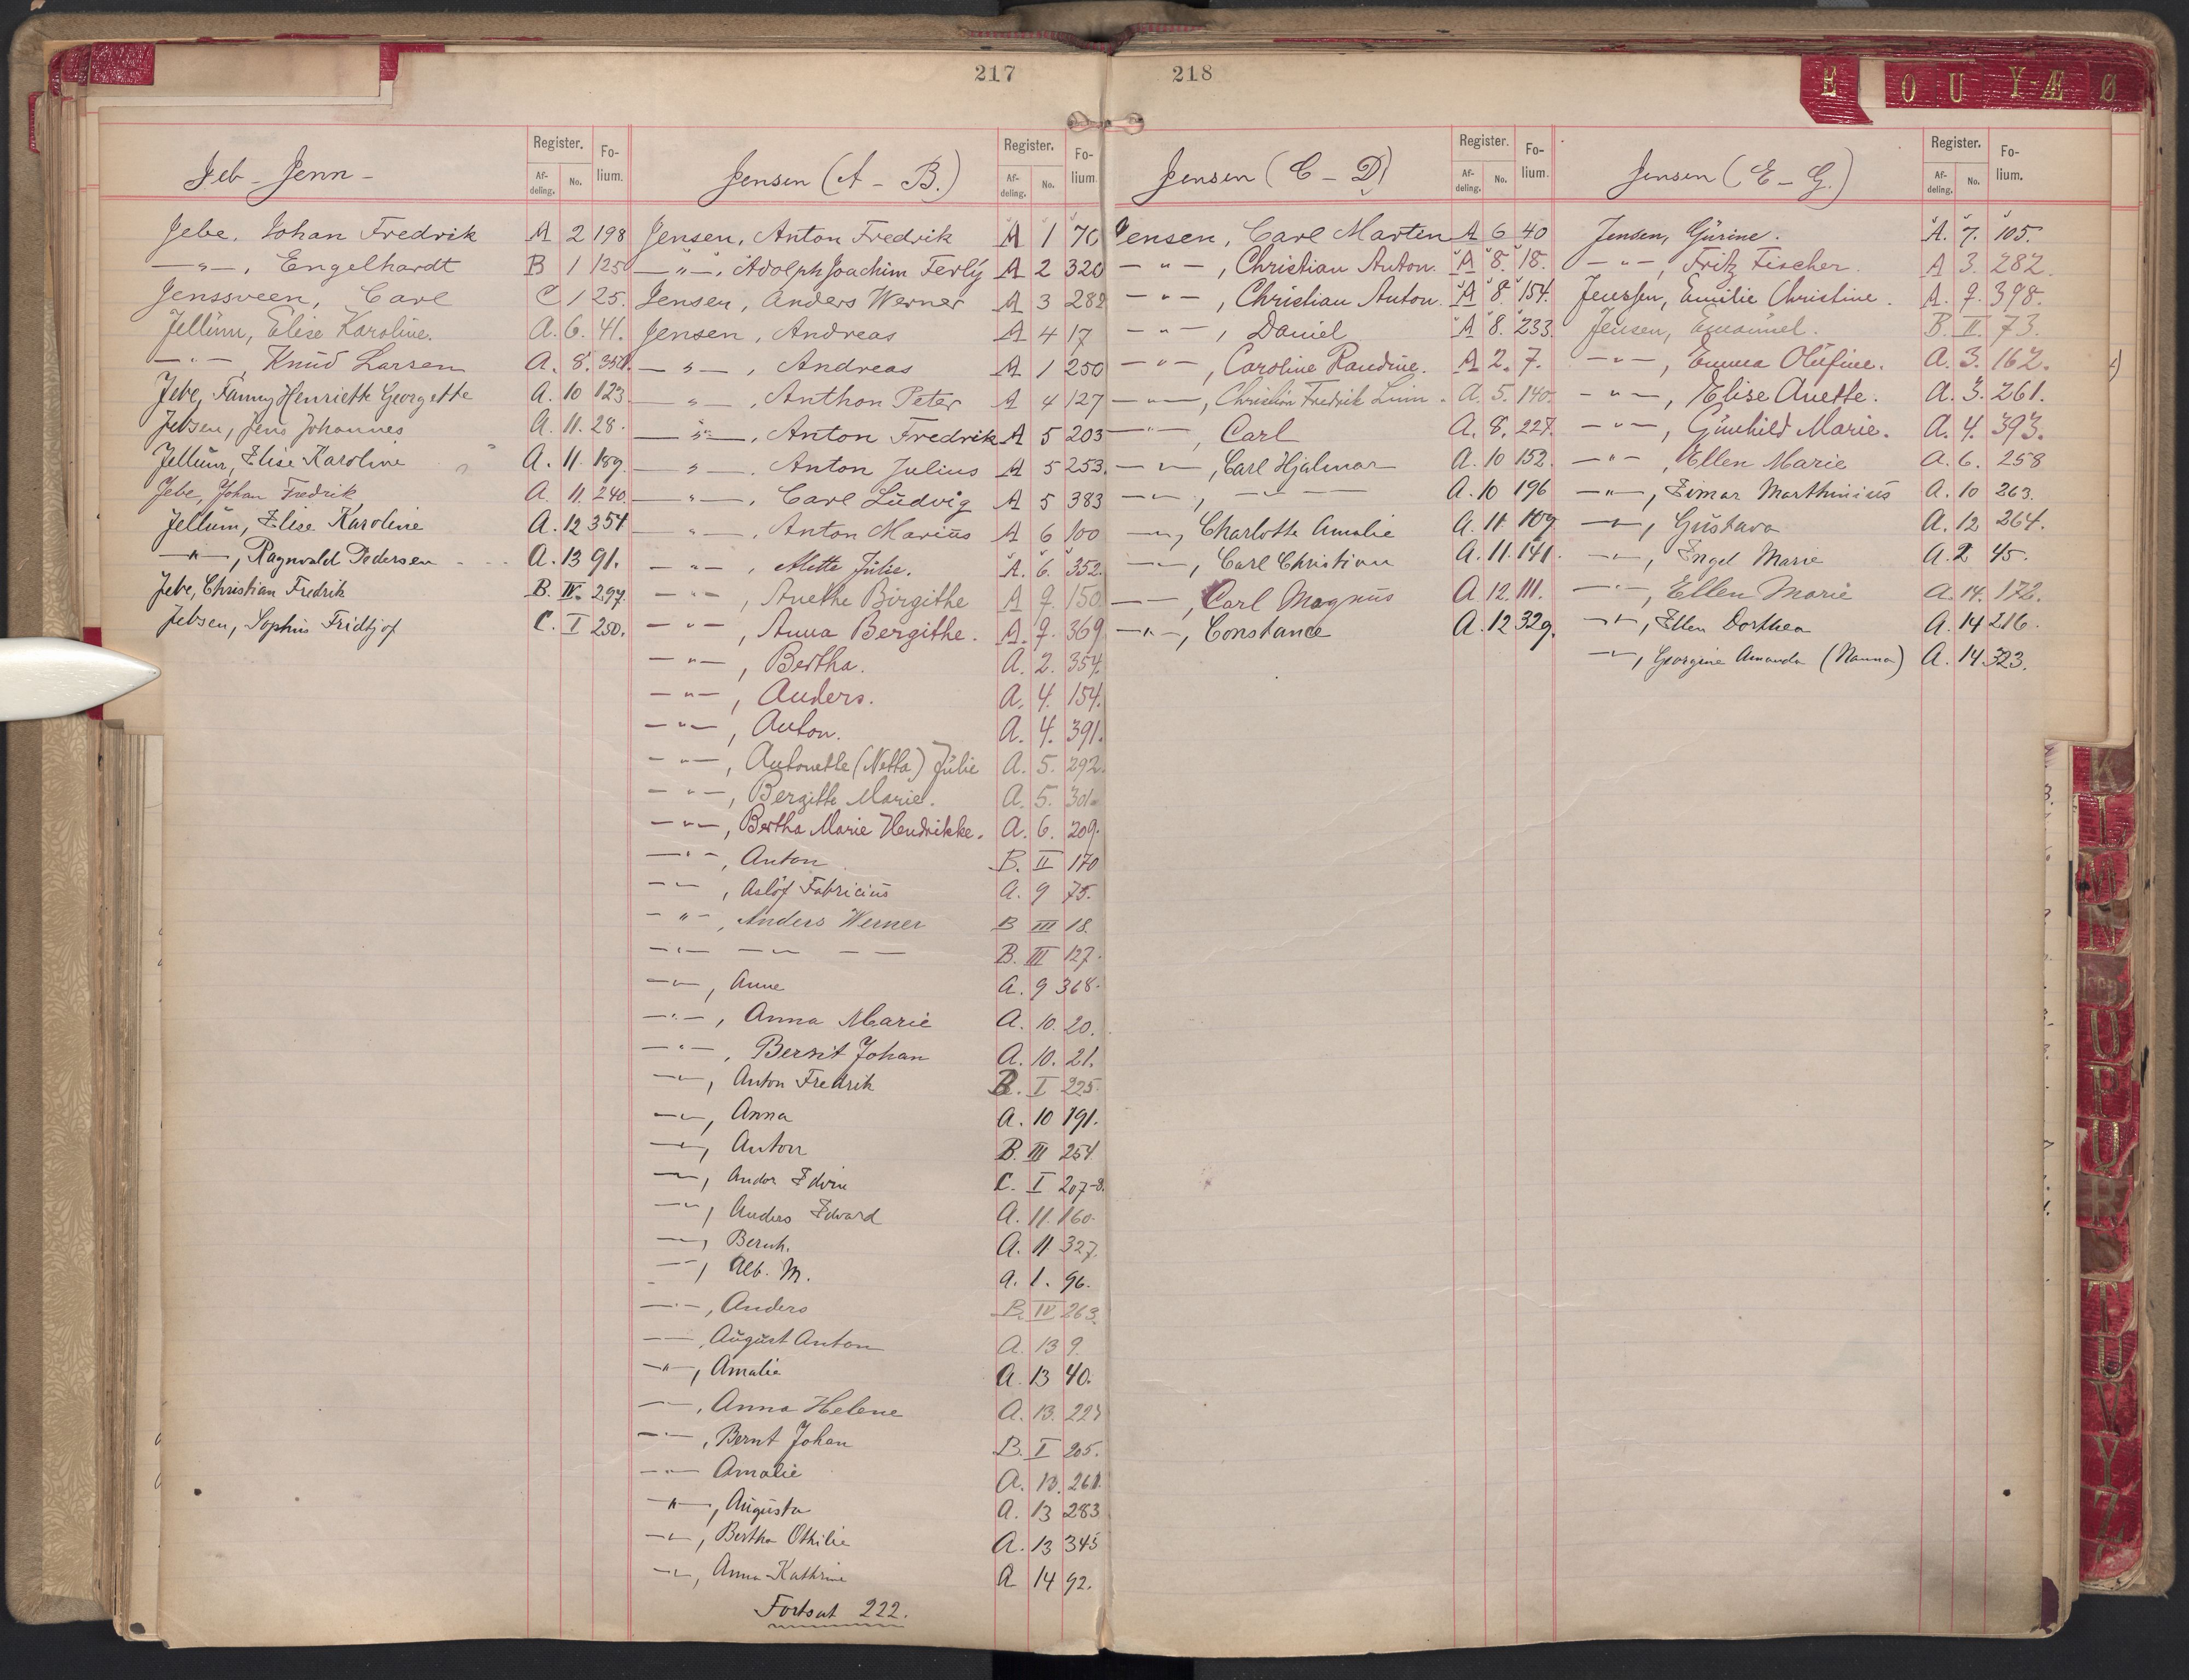 217
Register. Fo-
Af- No. lium.
deling.
Jeb - Jenn -
Jebe, Johan Fredrik A 2 198
—"—, Engelhardt B 1 125
Jenssveen, Carl C 1 25.
Jellum, Elise Karoline. A. 6. 41.
—"—, Knud Larsen A. 8. 350.
Jebe, Fanny Henriette Georgette A. 10 123
Jebsen, Jens Johannes A. 11. 28.
Jellum, Elise Karoline A. 11. 189.
Jebe, Johan Fredrik A. 11. 240.
Jellum, Elise Karoline A. 12 354
—"—, Ragnvald Pedersen A. 13 91.
Jebe, Christian Fredrik B. IV. 297.
Jebsen, Sophus Fridtjof C. I 250.
Register. Fo-
Af- No. lium.
deling.
Jensen (A - B.)
Jensen, Anton Fredrik A 1 70
—"—, Adolph Joachim Ferly A 2 320
Jensen, Anders Werner A 3 282
Jensen, Andreas A 4 17
—"—, Andreas A 1 250
—"—, Anthon Peter A 4 127
—"—, Anton Fredrik A 5 203
—"—, Anton Julius A 5 253.
—"—, Carl Ludvig A 5 383
—"—, Anton Marius A 6 100
—"—, Alette Julie. A. 6. 352.
—"—, Anethe Birgithe A 7. 150
—"—, Anna Bergithe. A. 7. 369.
—"—, Bertha. A. 2. 354.
—"—, Anders. A. 4. 154.
—"—, Anton. A. 4. 391.
—"—, Antonette (Netta) Julie A. 5. 292.
—"—, Bergitte Marie. A. 5. 301.
—"—, Bertha Marie Hendrikke. A. 6. 209.
—"—, Anton B. II 170
—"—, Aslof Fabricius A. 9 75.
—"—, Anders Werner B III 18.
—"— —"— — B. III 127.
—"—, Anne A. 9 368.
—"—, Anna Marie A. 10. 20.
—"—, Bernt Johan A. 10. 21.
—"—, Anton Fredrik B. I 225.
—"—, Anna A. 10 191.
—"—, Anton B. III 254.
—"—, Andor Edvin C. I 207-8.
—"—, Anders Edvard A. 11. 160.
—"—, Bernh. A. 11 327.
—"—, Alb. M. A. 1. 96.
—"—, Anders B. IV 263.
—"—, August Anton A. 13 9.
—"—, Amalie A. 13 40.
—"—, Anna Helene A. 13. 223
—"—, Bernt Johan B. I 205.
—"— Amalie A. 13. 261.
—"—, Augusta A. 13 283
—"—, Bertha Othilie A. 13 345
—"—, Anna Kathrine A 14 92.
Fortsat 222.
218
Register. Fo-
Af- No. lium.
deling.
Jensen (C - D)
Jensen, Carl Marten A 6 40
—"—, Christian Anton. A 8. 18.
—"—, Christian Anton. A 8. 154.
—"—, Daniel A 8. 233.
—"—, Caroline Randine. A 2. 7.
—"—, Christian Fredrik Linn. A. 5. 140.
—"—, Carl A. 8. 227.
—"—, Carl Hjalmar A. 10 152.
—"—, —"— — A. 10 196
—"—, Charlotte Amalie A. 11. 109.
—"—, Carl Christian A. 11. 141.
—"—, Carl Magnus A. 12. 111.
—"—, Constance A. 12 329.
Register. Fo-
Af- No. lium.
deling.
Jensen (E - G.)
Jensen, Gurine. A. 7. 105.
—"—, Fritz Fischer. A 3. 282.
Jenssen, Emilie Christine. A. 7. 398.
Jensen, Emanuel. B. II. 73.
—"—, Emma Olufine. A. 3. 162.
—"—, Elise Anette. A. 3. 261.
—"—, Gunhild Marie. A. 4. 393.
—"—, Ellen Marie A. 6. 258
—"—, Einar Marthinius A. 10 263.
—"—, Gustava A. 12 264.
—"—, Engel Marie A. 2 45.
—"—, Ellen Marie A. 14. 172.
—"—, Ellen Dorthea A. 14 216.
—"—, Georgine Amanda (Nanna) A. 14 323.
E O U Y-Æ Ø
K
L
M
N
O
P
U
T
U
V
Y